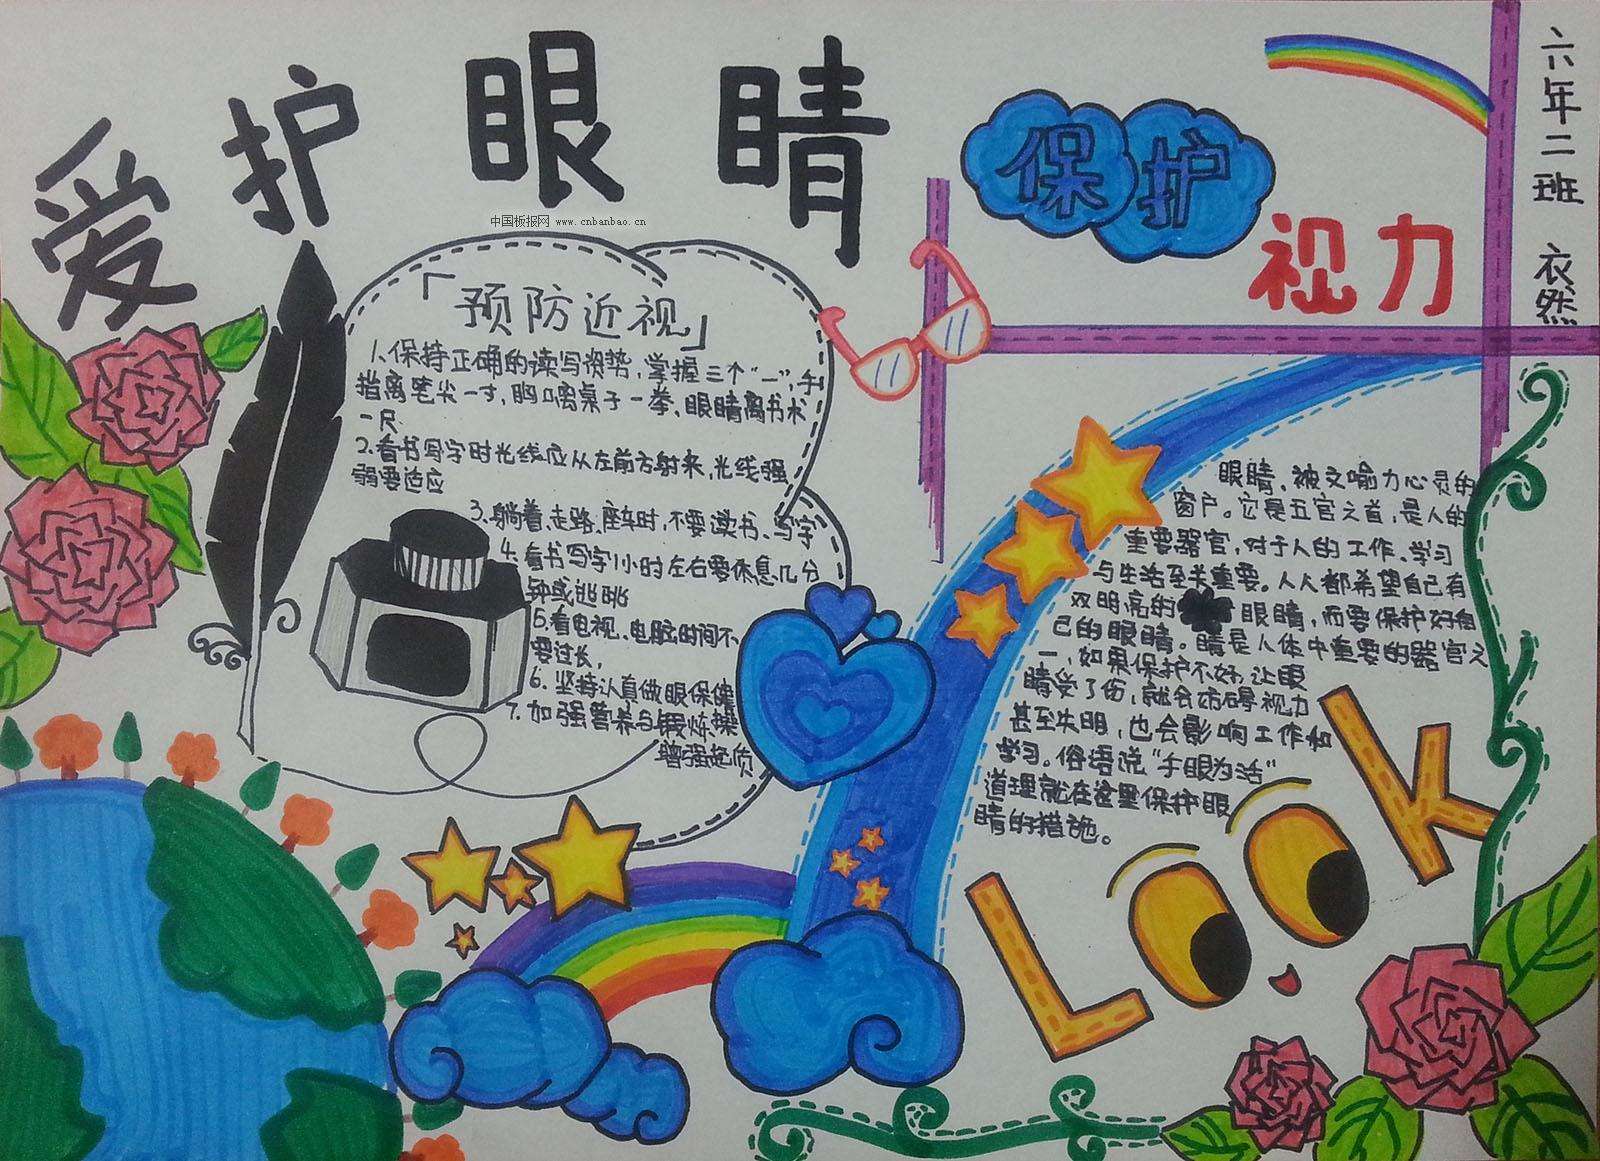 爱护眼睛
中国板报网 www.cnbanbao.cn
保护
视力
六年二班 衣然
「预防近视」
1.保持正确的读写姿势,掌握三个“一”,手
指离笔尖一寸,胸口离桌子一拳、眼睛离书本
一尺
2.看书写字时光线应从左前方射来,光线强
弱要适应
3、躺着、走路、座车时,不要读书、写字
4.看书写字1小时左右要休息几分
钟或远眺
5.看电视、电脑时间不
要过长,
6.坚持认真做眼保健
7.加强营养与锻炼,
增强
眼睛,被文喻为心灵的
窗户。它是五官之首,是人的
重要器官,对于人的工作、学习
与生活至关重要。人人都希望自己有
双明亮的眼睛,而要保护好自
己的眼睛。睛是人体中重要的器官之
一,如果保护不好,让眼
睛受了伤,就会妨碍视力
甚至失明,也会影响工作和
学习。俗语说“手眼为活”
道理就在这里保护眼
睛的措施。
Look